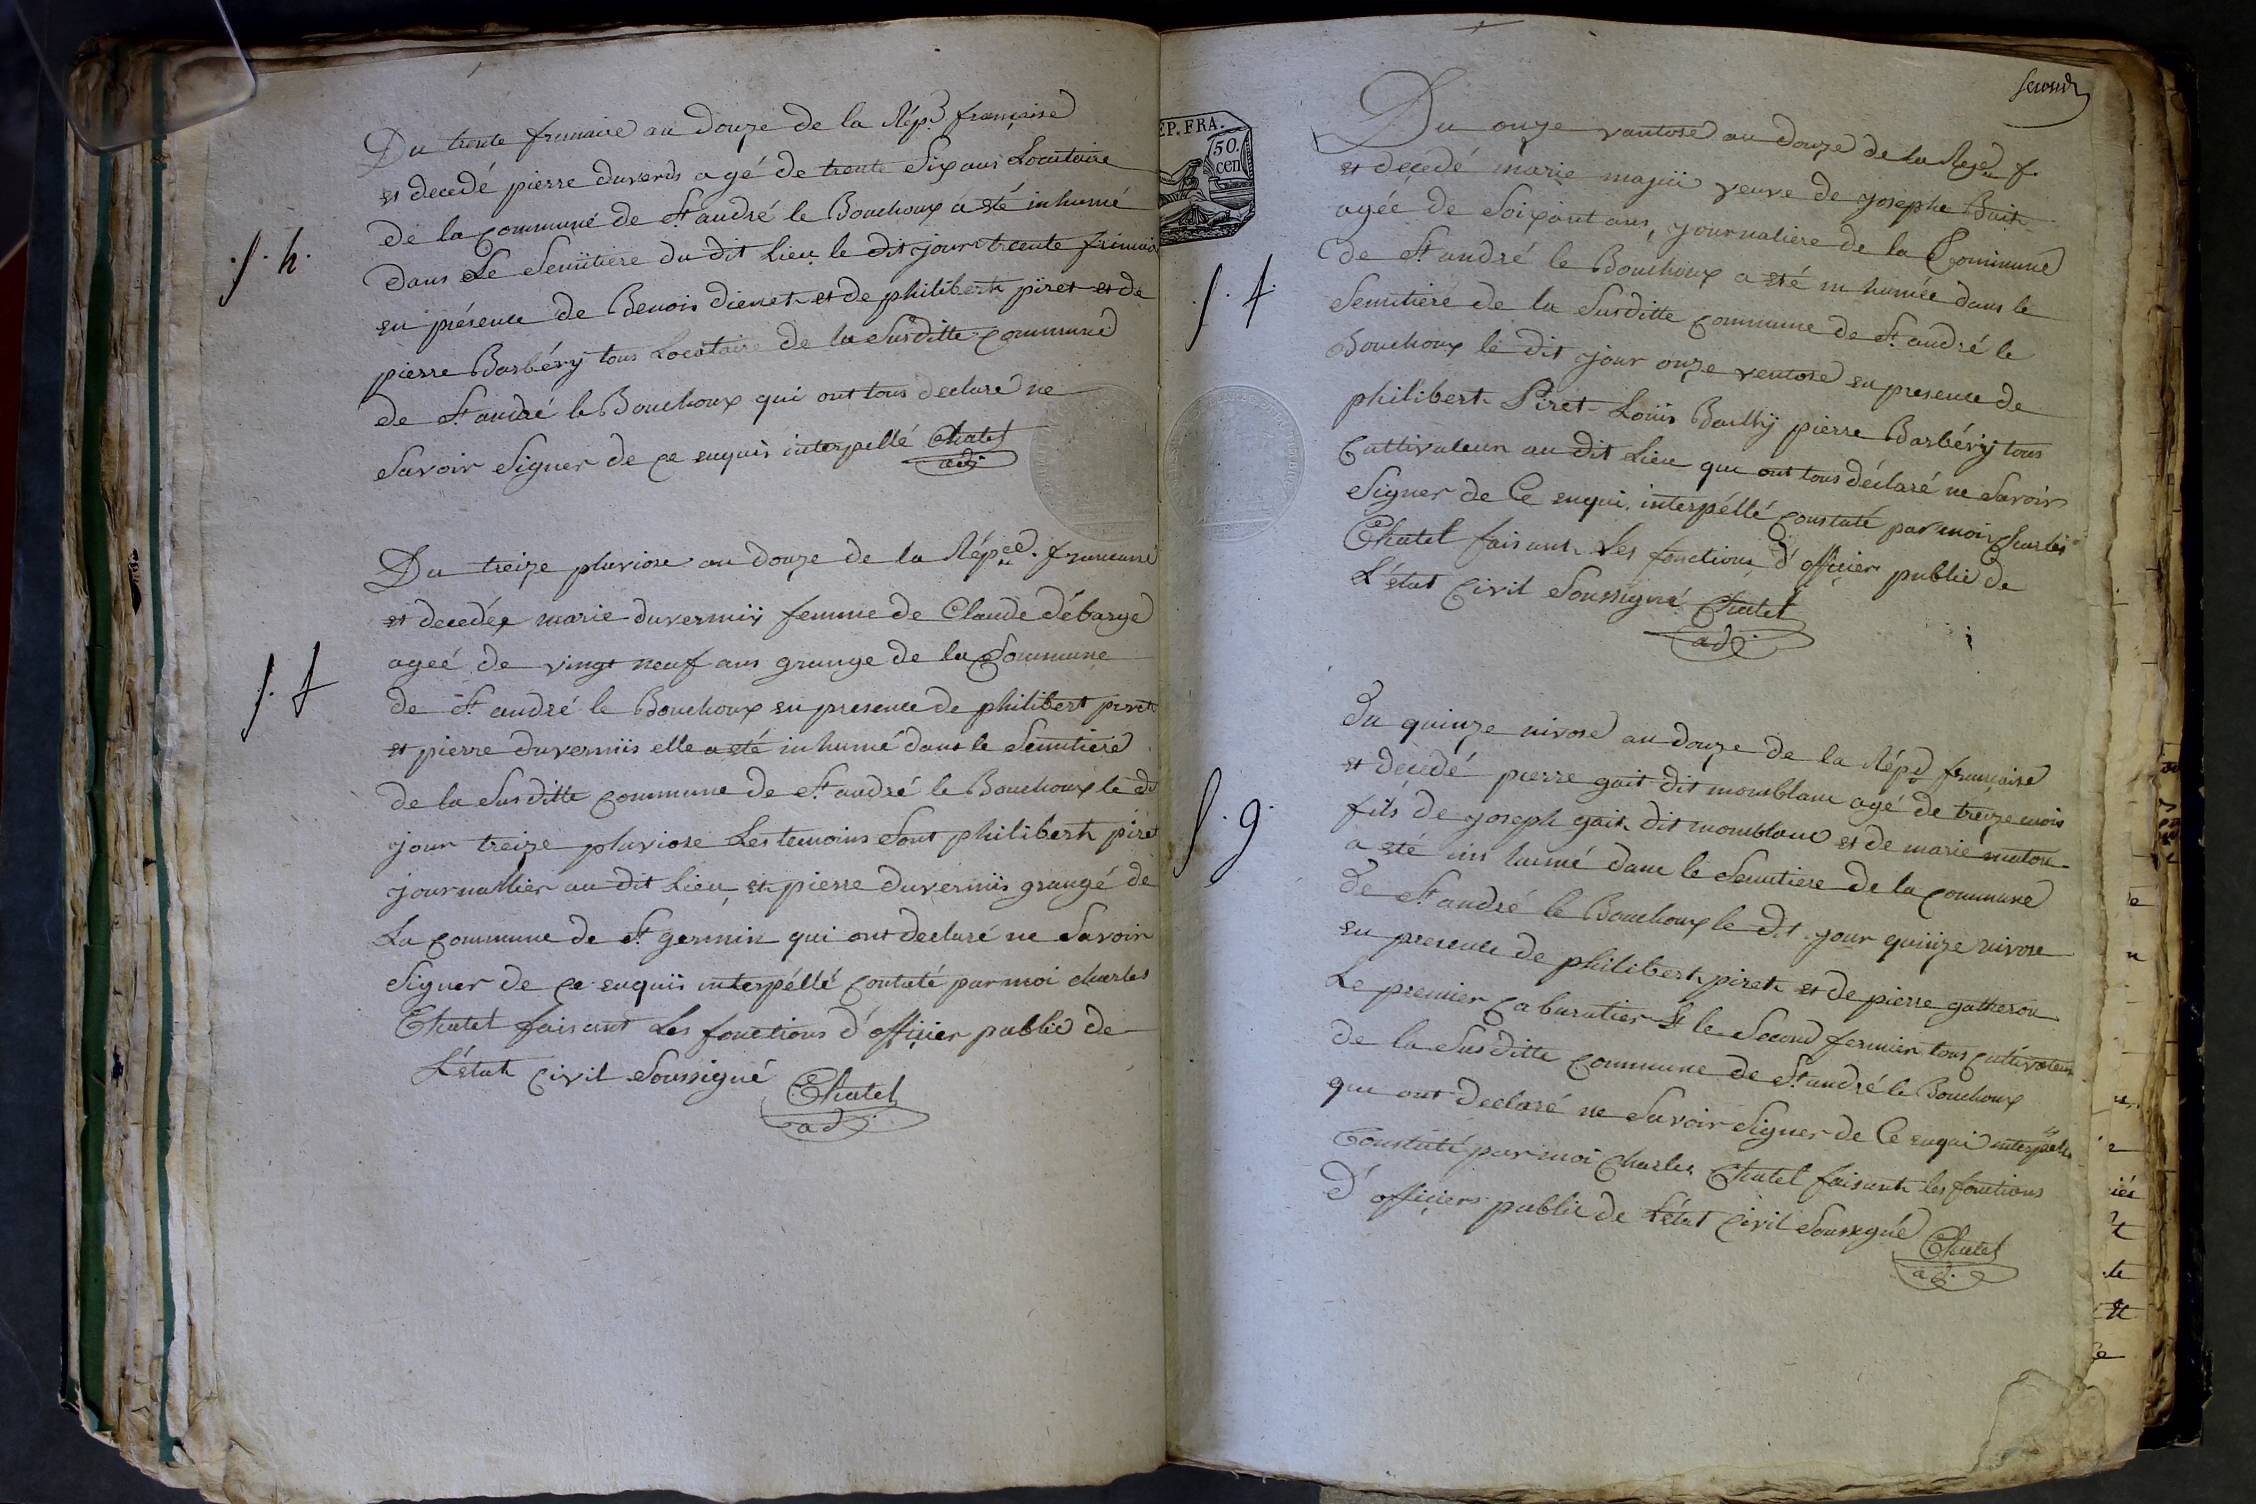 Du trente frimaire an douze de la Rép. française
et decedé pierre duverds agé de trente Six ans Locataire
de la Commune de St andré le Bouchoux a eté inhumé
dans Le Semitiere du dit Lieu le dit jour trente frimair
en présence de Benois et de philibert piret et de
pierre Barbéry tous Locataire de la Susditte commune
de St andré le Bouchoux qui ont tous declaré ne
Savoir Signer de ce enquis interpellé Chatel
adj.
f. h.
Du treize pluviose an douze de la Répce. francaise
et decedée marie duverniy femme de Claude débarge
ageé de vingt neuf ans grange de la Commune
de St andré le Bouchoux en presence de philibert piret
et pierre duverniis elle a eté inhumé dans le Semitiere
de la Susditte commune de St andré le Bouchoux le dt
jour treize pluviose Les temoins Sont philibert piret
journallier au dit Lieu et pierre duverniis grangé de
La commune de St germin qui ont declaré ne Savoir
Signer de ce enquis interpéllé contaté par moi charles
Chatel faisant Les fonctions d'officier public de
L'état Civil Soussigné Chatel
adj.
f. f
second
EP. FRA.
50.
cen
Du onze vantose an douze de la Repe f.
et decedé marie majui veuve de josephe Buit
agée de Soixant ans, journaliere de la Commune
de St andré le Bouchoux a eté in humée dans le
Semitiere de la Susditte commune de St andré le
Bouchoux le dit jour onze ventose en presence de
philibert Piret Louis Bailly pierre Barbéry tous
Cultivateur au dit Lieu qui ont tous déclaré ne Savoir
Signer de Ce enqui interpéllé constaté par moi Charles
Chatel faisant Les fonctions d'officier public de
L'état Civil Soussigné Chatel
adj.
f. f.
Du quinze nivose an douze de la Rép française
et decedé pierre gait dit monblanc agé de treize mois
fils de joseph gait dit monblanc et de marie maton
a eté in humé dans le Semitiere de la commune
de St andré le Bouchoux le dit jour quinze nivose
en presence de philibert piret et de pierre gatheron
Le premier Cabaratier et le Second fermier tous Cultivateur
de la Susditte Commune de St andré le Bouchoux
qui ont declaré ne Savoir Signer de Ce enqui interpellé
Constaté par moi Charles Chatel faisant les fonctions
d'officiers public de L'état Civil Soussigné Chatel
adj.
f. g.